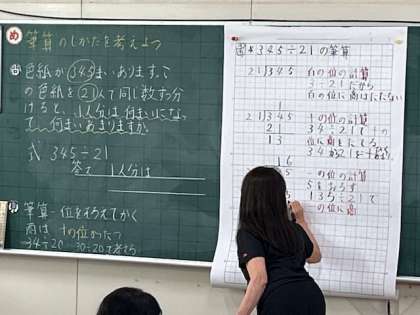 め 筆算のしかたを考えよう
色紙が345まいあります。こ
の色紙を21人で同じ数ずつ分
けると、1人分は何まいになっ
て、何まいあまりますか。
式 345÷21
答え 1人分は
筆算…位をそろえてかく
商は 十の位からたつ
34÷20 30÷20で考える
345÷21の筆算
21)345 百の位の計算
3÷21だから
百の位に商はたたない
1
21)345 十の位の計算
21 34÷21で十の
13 位に商をたてる
16
一の位の計算
5をおろす
135÷21で
一の位に商